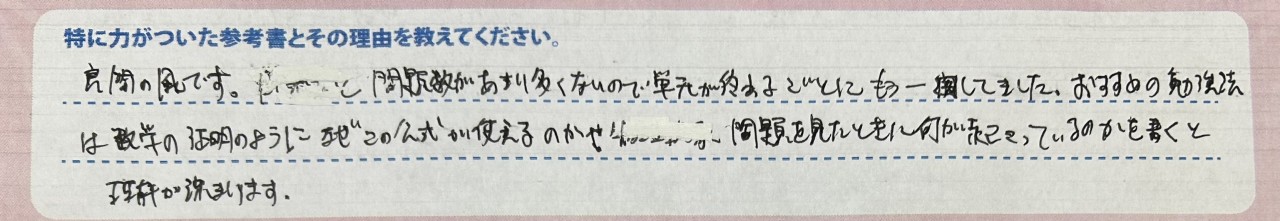 特に力がついた参考書とその理由を教えてください。
良問の風です。 問題数があまり多くないので単元が終わるごとにもう一周してました。おすすめの勉強法
は数学の証明のようになぜこの公式が使えるのかや 問題を見たときに何が起こっているのかを書くと
理解が深まります。